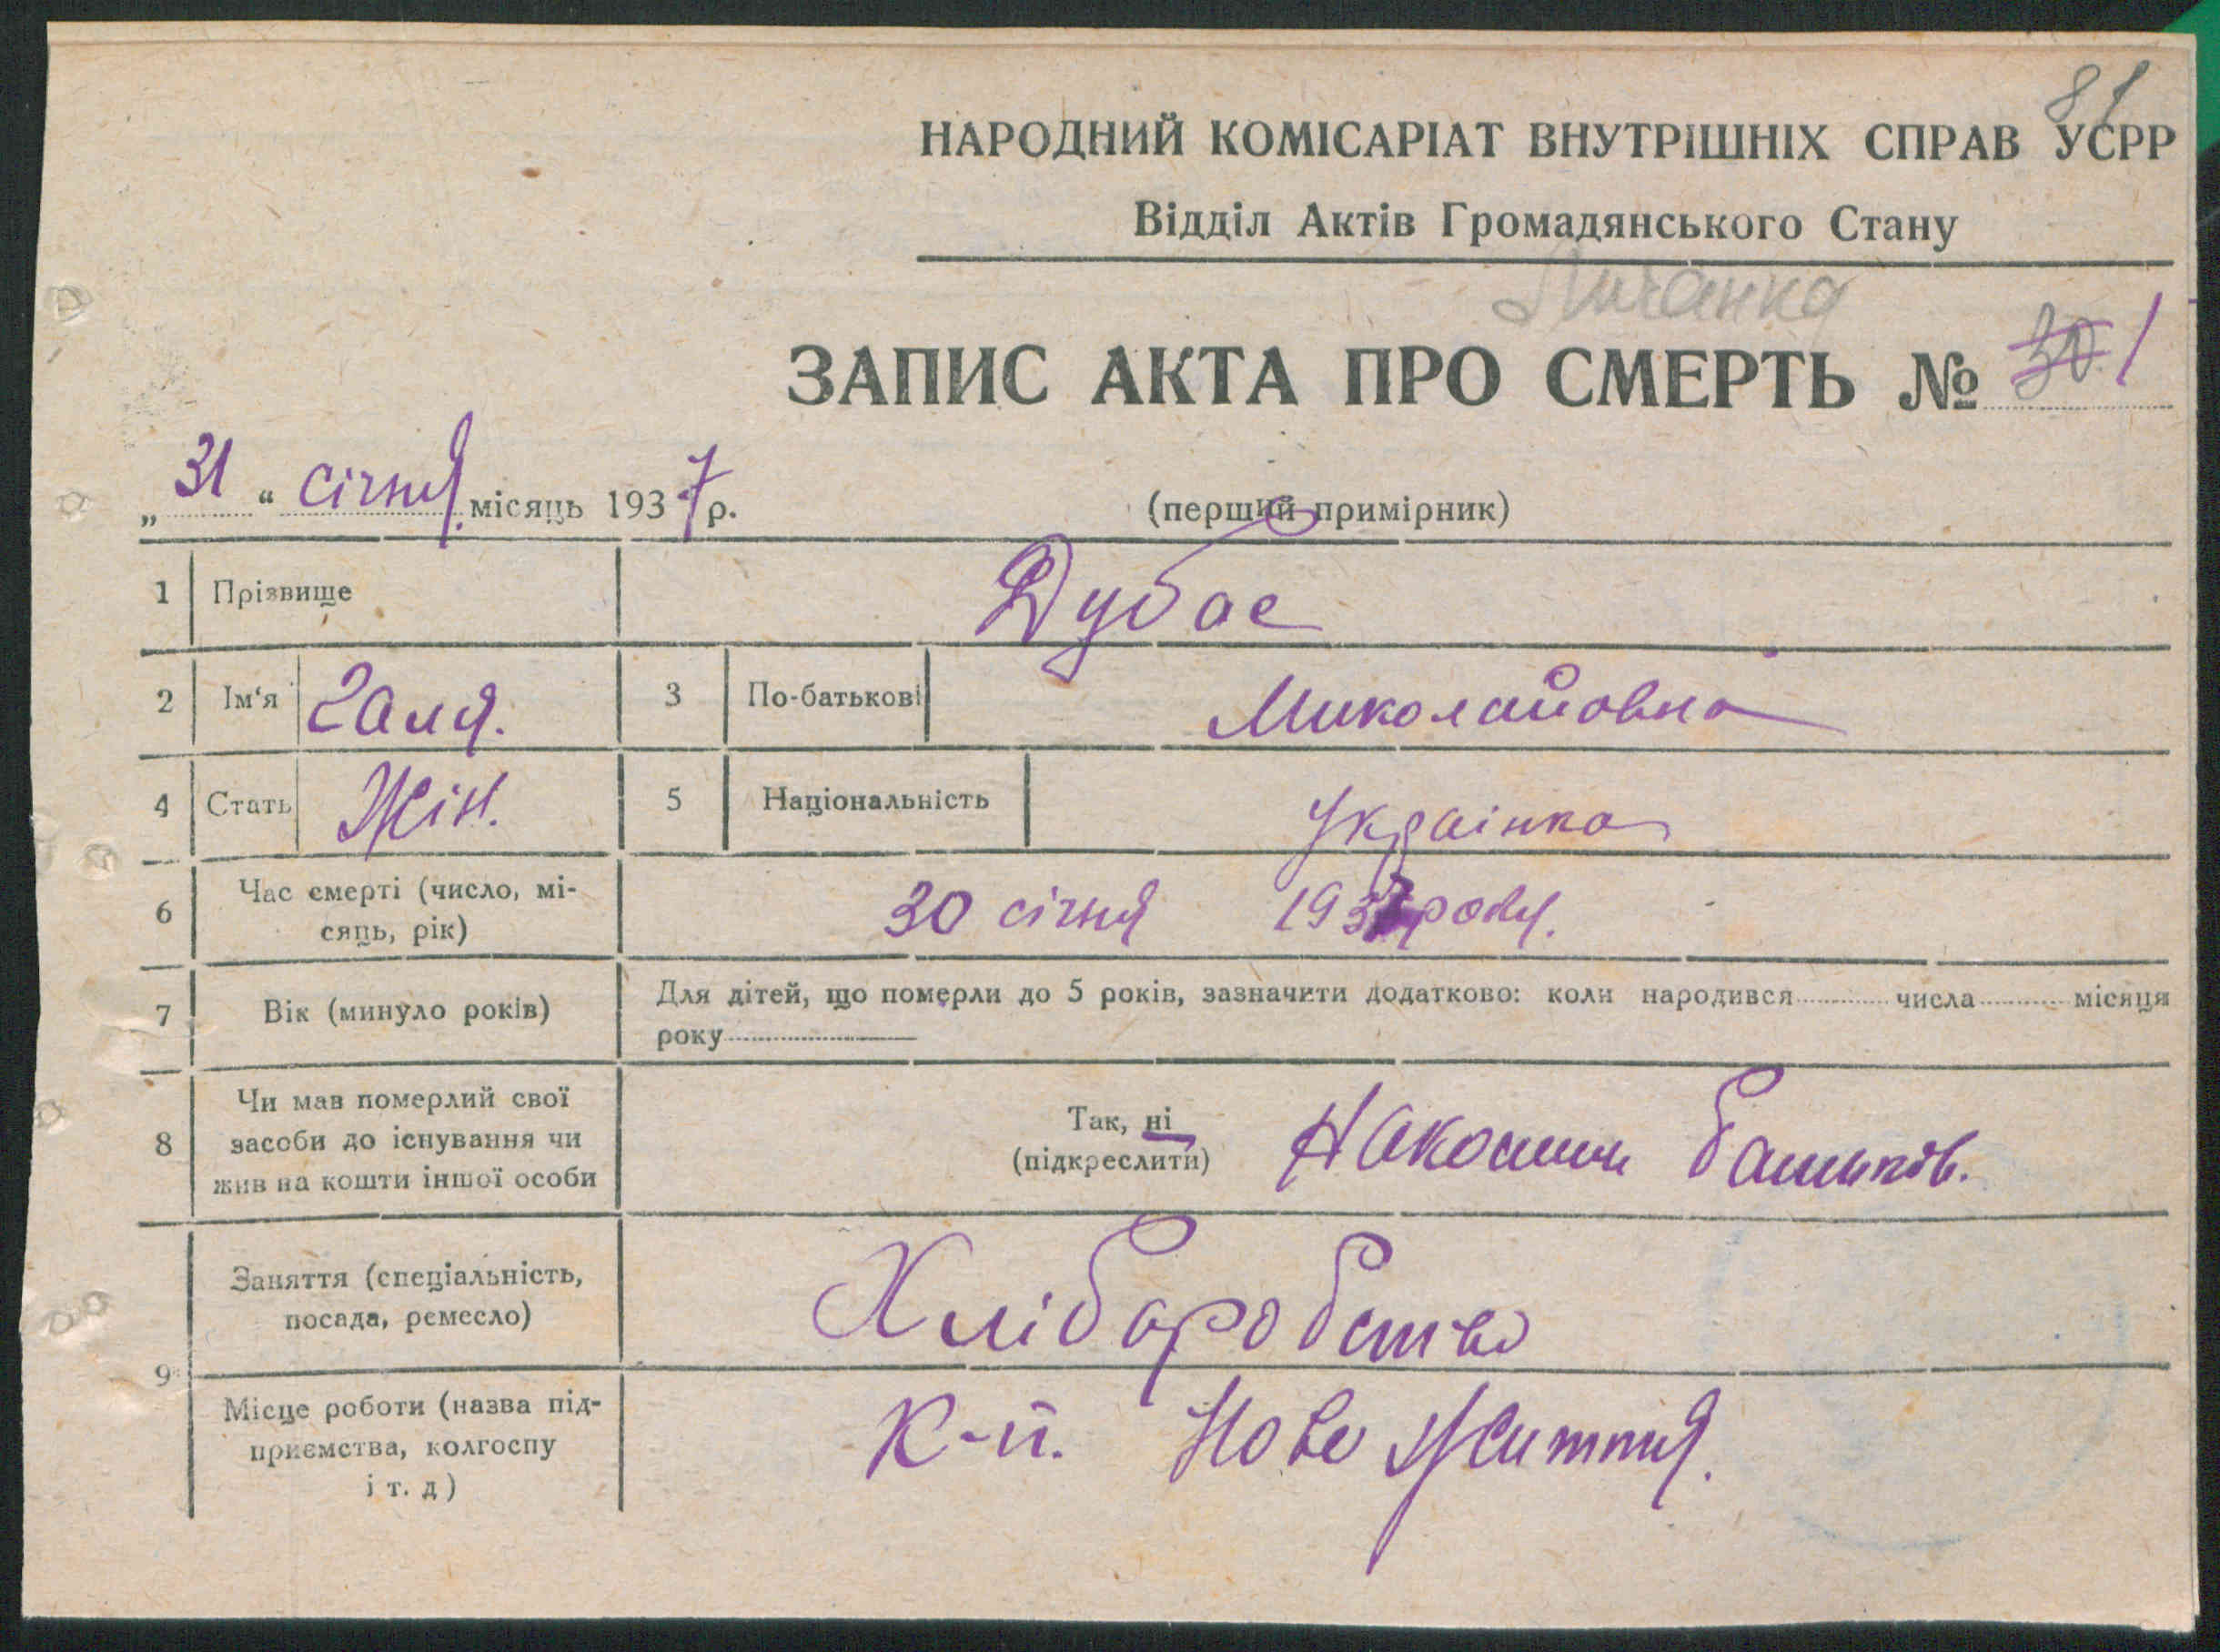 81
НАРОДНИЙ КОМІСАРІАТ ВНУТРІШНІХ СПРАВ УСРР
Відділ Актів Громадянського Стану
Личанка
ЗАПИС АКТА ПРО СМЕРТЬ № 30 1
„31“ січня місяць 1937 р.
(перший примірник)
1 Прізвище Дубас
2 Ім'я Галя. 3 По-батькові Миколайовна
4 Стать Жін. 5 Національність Українка
6 Час смерті (число, мі-
сяць, рік) 30 січня 1937 року.
7 Вік (минуло років) Для дітей, що померли до 5 років, зазначити додатково: коли народився числа місяця
року
8 Чи мав померлий свої
засоби до існування чи
жив на кошти іншої особи
Так, ні
(підкреслити)
На кошти батьків.
9 Заняття (спеціальність,
посада, ремесло) Хліборобство
Місце роботи (назва під-
приємства, колгоспу
і т. д)
К-п. Нове Життя.